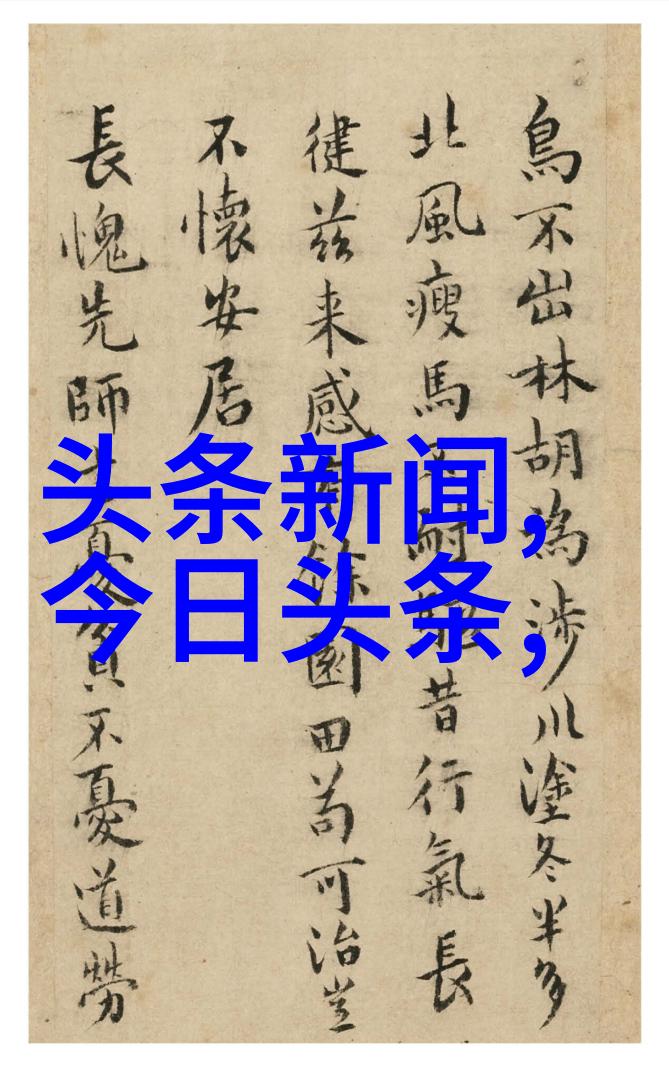 鳥不出林胡為涉川塗冬半多
北風瘦馬耐昔行氣長
徤茲来感園田苟可治豈
不懷安居
長愧先師憂貧不憂道勞
头条新闻,
今日头条,